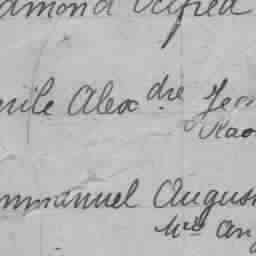 dmond Alfred
rile Alexdre Fer
Rao
mmanuel Augus
Mce Ang